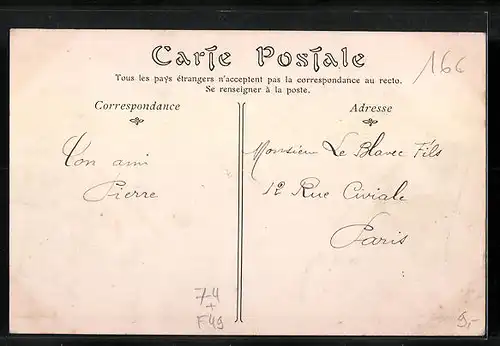 Carte Postale
166
Tous les pays étrangers n'acceptent pas la correspondance au recto.
Se renseigner à la poste.
Correspondance
Ton ami
Pierre
Adresse
Monsieur Le Blavec Fils
12 Rue Civiale
Paris
74
+
F49
9,-